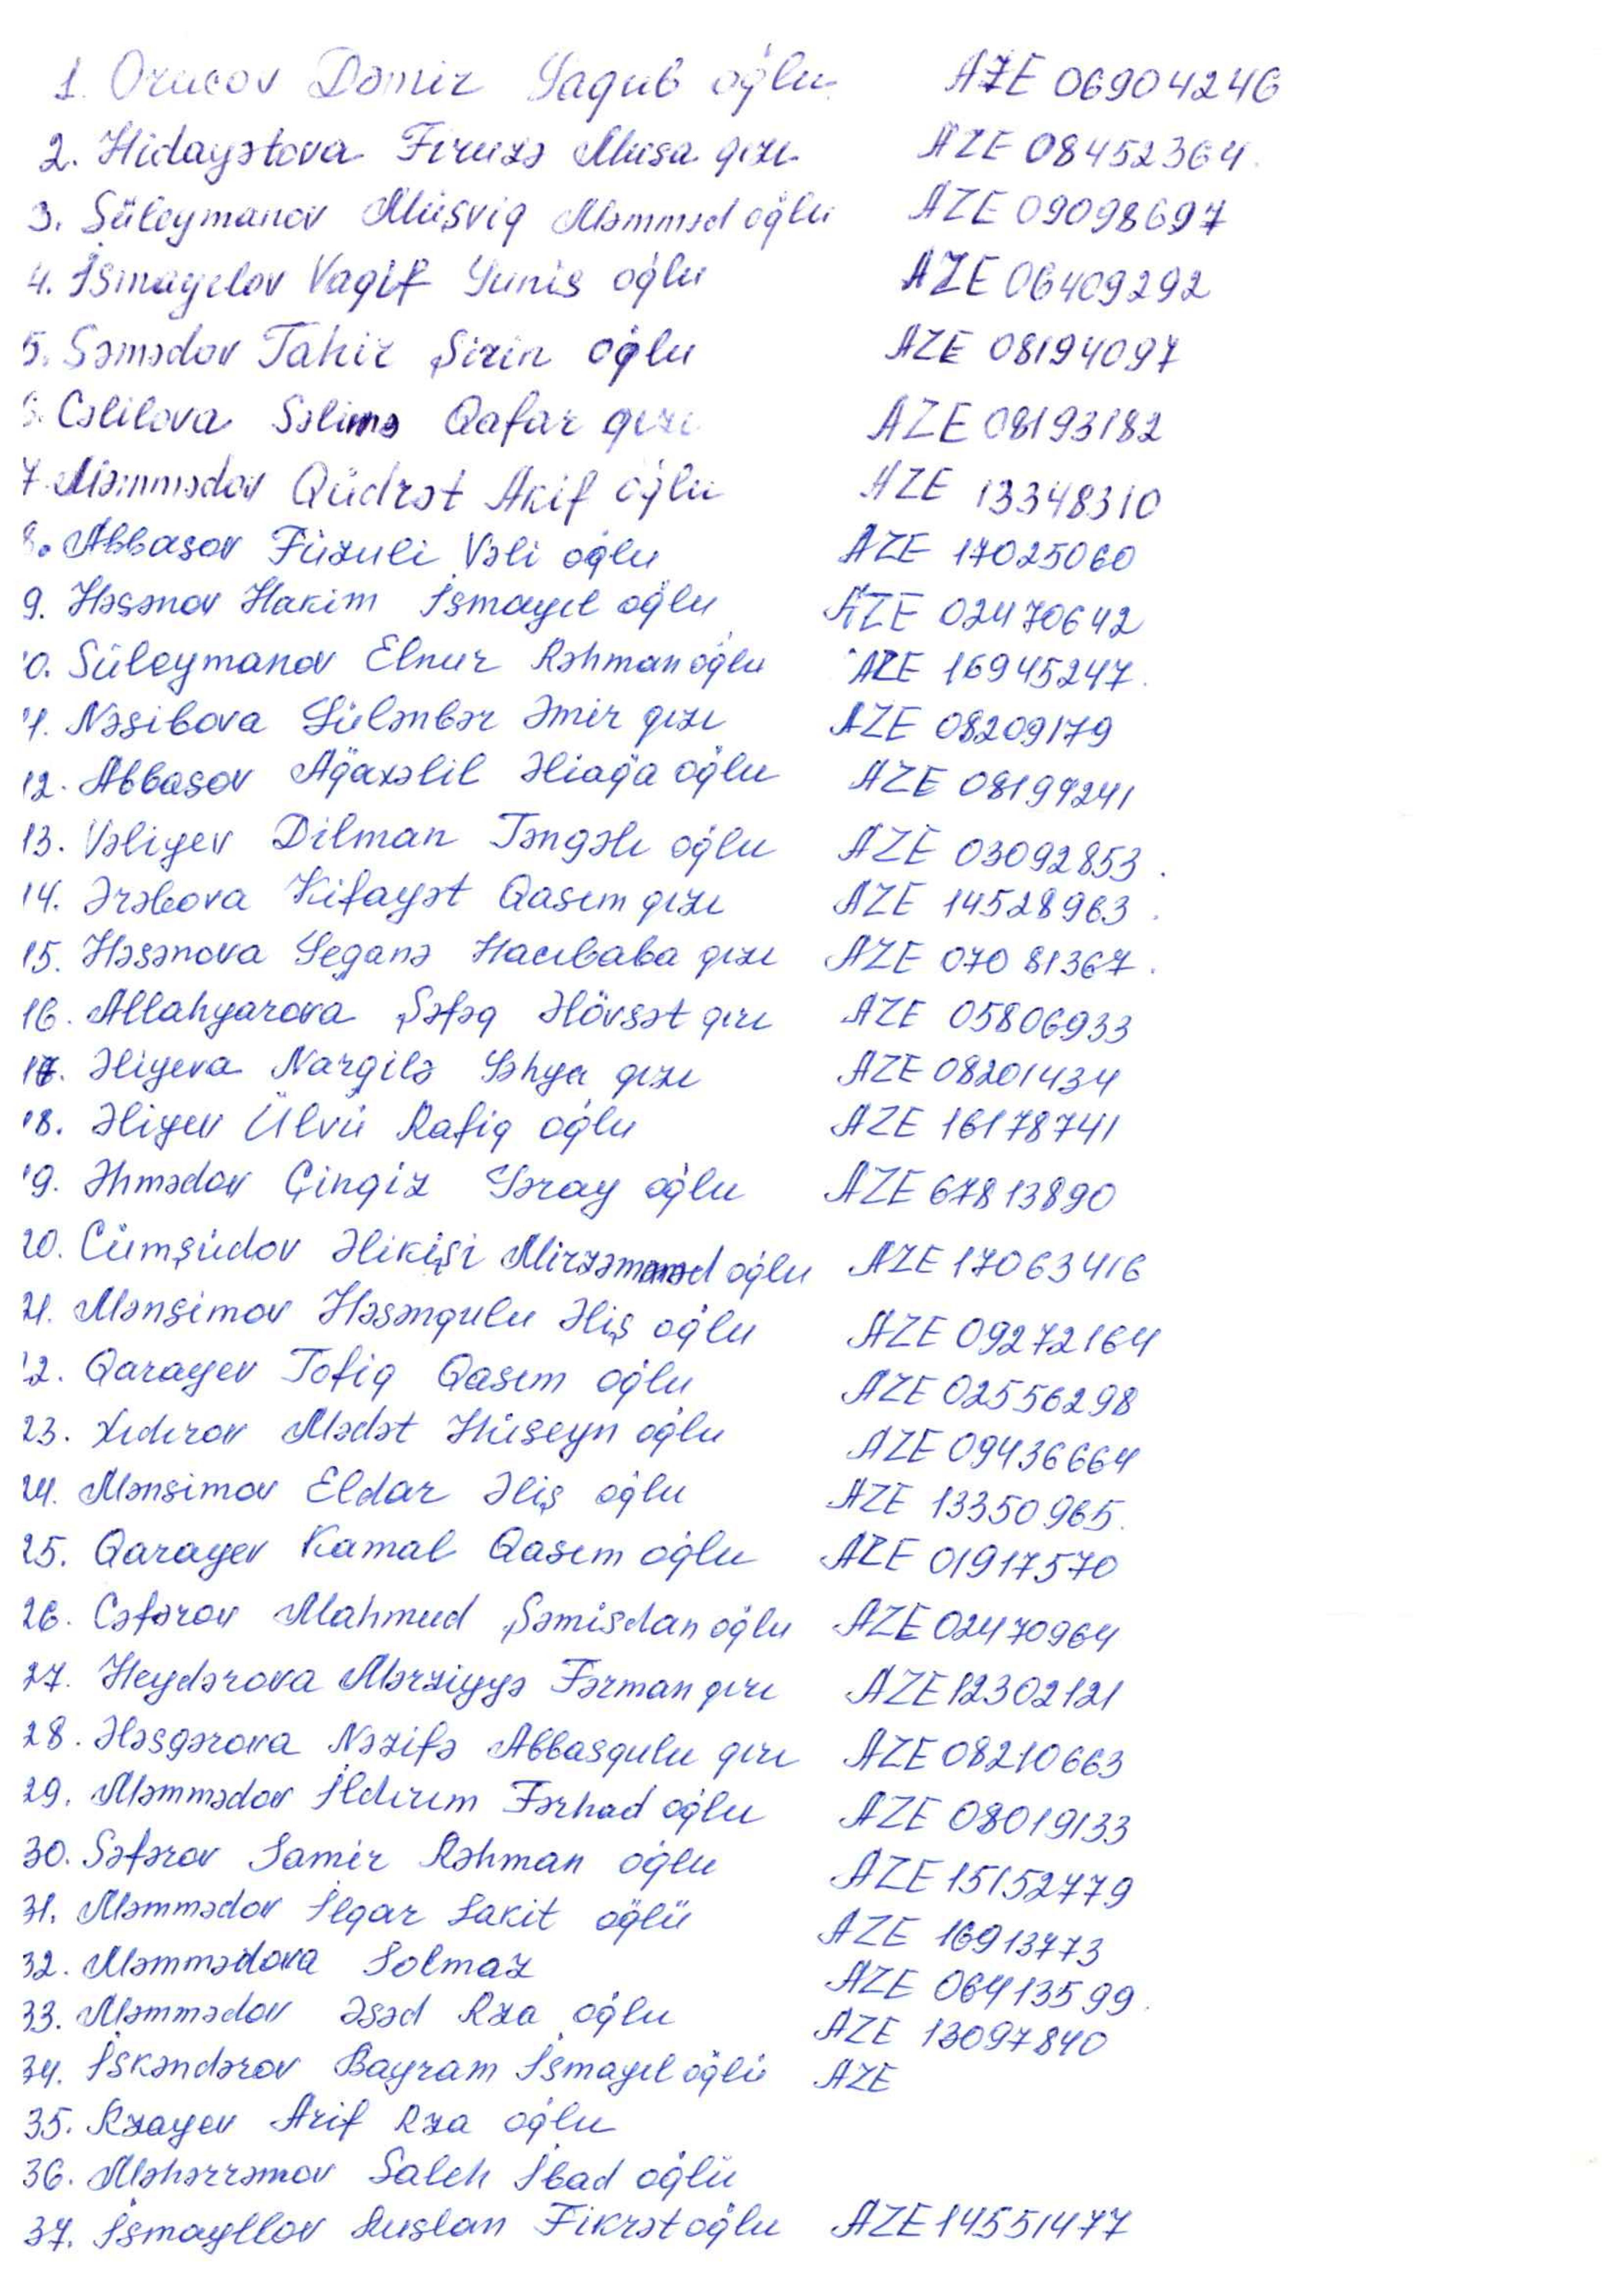 1. Orucov Dəmir Yaqub oğlu AZE 06904246
2. Hidayətova Firuzə Musa qızı AZE 08452364
3. Süleymanov Müşviq Məmməd oğlu AZE 09098697
4. İsmayılov Vaqif Yunis oğlu AZE 06409292
5. Səmədov Tahir Şirin oğlu AZE 08194097
6. Cəlilova Səlimə Qafar qızı AZE 08193182
7. Məmmədov Qüdrət Akif oğlu AZE 13348310
8. Abbasov Füzuli Vəli oğlu AZE 17025060
9. Həsənov Hakim İsmayıl oğlu AZE 02470642
10. Süleymanov Elnur Rəhman oğlu AZE 16945247
11. Nəsibova Gülənbər Əmir qızı AZE 08209179
12. Abbasov Ağaxəlil Əliağa oğlu AZE 08199241
13. Vəliyev Dilman Təngəlı oğlu AZE 03092853
14. Ərəbova Kifayət Qasım qızı AZE 14528963
15. Həsənova Yeganə Hacıbaba qızı AZE 07081367
16. Allahyarova Şəfəq Əlövsət qızı AZE 05806933
17. Əliyeva Nargilə Yəhya qızı AZE 08201434
18. Əliyev Ülvü Rafiq oğlu AZE 16178741
19. Əhmədov Çingiz Gəray oğlu AZE 67813890
20. Cümşüdov Əlikişi Mirzəməmməd oğlu AZE 17063416
21. Mənsimov Həsənqulu Əliş oğlu AZE 09272164
22. Qarayev Tofiq Qasım oğlu AZE 02556298
23. Xıdırov Mədət Hüseyn oğlu AZE 09436664
24. Mənsimov Eldar Əliş oğlu AZE 13350965
25. Qarayev Kamal Qasım oğlu AZE 01917570
26. Cəfərov Mahmud Şəmisdan oğlu AZE 02470964
27. Heydərova Mərziyyə Fərman qızı AZE 12302121
28. Ələsgərova Nəzifə Abbasqulu qızı AZE 08210663
29. Məmmədov İldırım Fərhad oğlu AZE 08019133
30. Səfərov Samir Rəhman oğlu AZE 15152779
31. Məmmədov İlqar Sakit oğlü AZE 16913773
32. Məmmədova Solmaz AZE 06413599
33. Məmmədov Əsəd Rza oğlu AZE 13097840
34. İskəndərov Bayram İsmayıl oğlu AZE
35. Rzayev Arif Rza oğlu
36. Məhərrəmov Saleh İbad oğlu
37. İsmayllov Ruslan Fikrət oğlu AZE 14551477